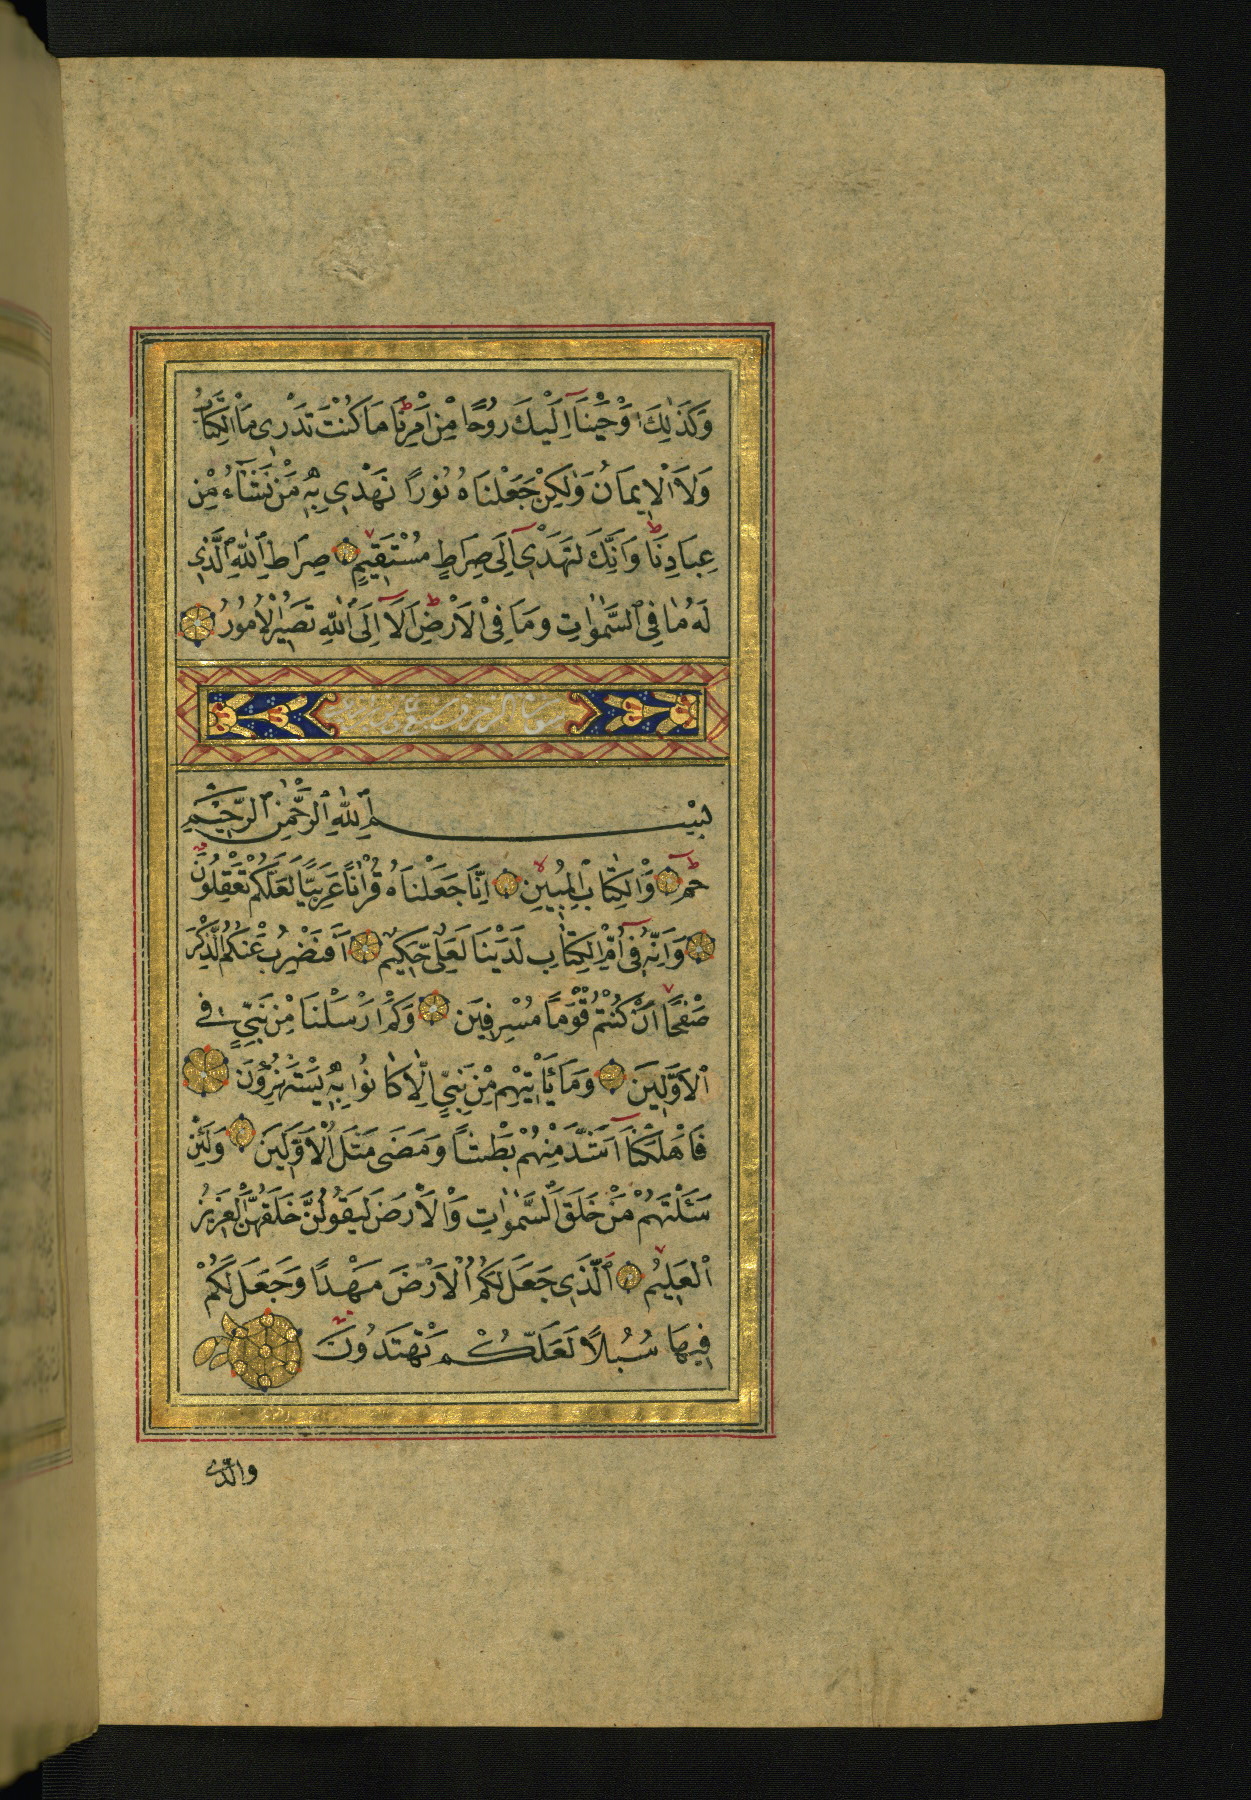 وَكَذٰلِكَ اَوْحَيْنَا اِلَيْكَ رُوحًا مِنْ اَمْرِنَا مَا كُنْتَ تَدْرِى مَا الْكِتَابُ
وَلَا الْاِيمَانُ وَلٰكِنْ جَعَلْنَاهُ نُورًا نَهْدِى بِهٖ مَنْ نَشَاءُ مِنْ
عِبَادِنَا وَاِنَّكَ لَتَهْدِى اِلَى صِرَاطٍ مُسْتَقِيمٍ صِرَاطِ اللّٰهِ الَّذِى
لَهُ مَا فِى السَّمٰوَاتِ وَمَا فِى الْاَرْضِ اَلَا اِلَى اللّٰهِ تَصِيرُ الْاُمُورُ
سورة الزخرف
بِسْمِ اللّٰهِ الرَّحْمٰنِ الرَّحِيمِ
حٰمٓ وَالْكِتَابِ الْمُبِينِ اِنَّا جَعَلْنَاهُ قُرْاٰنًا عَرَبِيًّا لَعَلَّكُمْ تَعْقِلُونَ
وَاِنَّهُ فِى اُمِّ الْكِتَابِ لَدَيْنَا لَعَلِىٌّ حَكِيمٌ اَفَنَضْرِبُ عَنْكُمُ الذِّكْرَ
صَفْحًا اَنْ كُنْتُمْ قَوْمًا مُسْرِفِينَ وَكَمْ اَرْسَلْنَا مِنْ نَبِىٍّ فِى
الْاَوَّلِينَ وَمَا يَأْتِيهِمْ مِنْ نَبِىٍّ اِلَّا كَانُوا بِهٖ يَسْتَهْزِؤُنَ
فَاَهْلَكْنَا اَشَدَّ مِنْهُمْ بَطْشًا وَمَضَى مَثَلُ الْاَوَّلِينَ وَلَئِنْ
سَئَلْتَهُمْ مَنْ خَلَقَ السَّمٰوَاتِ وَالْاَرْضَ لَيَقُولُنَّ خَلَقَهُنَّ الْعَزِيزُ
الْعَلِيمُ الَّذِى جَعَلَ لَكُمُ الْاَرْضَ مَهْدًا وَجَعَلَ لَكُمْ
فِيهَا سُبُلًا لَعَلَّكُمْ تَهْتَدُونَ
والذى